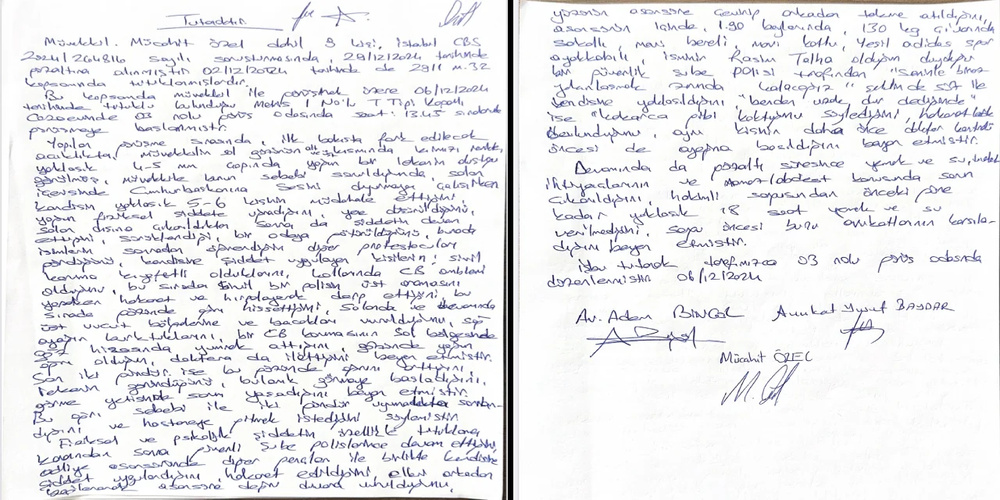 Tutanaktır
Müvekkil Mücahit Özel dahil 9 kişi, İstanbul CBS
2024/264816 sayılı soruşturmasında, 29/11/2024 tarihinde
gözaltına alınmıştır 02/12/2024 tarihinde de 2911 m.32
kapsamında tutuklanmışlardır.
Bu kapsamda müvekkil ile görüşmek üzere 06/12/2024
tarihinde tutuklu bulunduğu 1 No'lu T Tipi Kapalı
Cezaevinde 03 nolu görüş odasında saat: 13.45 sıralarında
görüşmeye başlanmıştır.
Yapılan görüşme sırasında, ilk bakışta fark edilecek
açıklıkta, müvekkilin sol gözünün alt kısmında kırmızı renkli,
yaklaşık 4-5 mm çapında yoğun bir lekenin oluştuğu
görülmüş, müvekkile bunun sebebi sorulduğunda, salon
içerisinde Cumhurbaşkanına sesini duyurmaya çalışırken
kendisine yaklaşık 5-6 kişinin müdahale ettiğini
yoğun fiziksel şiddete uğradığını, yere düşürüldüğünü,
salon dışına çıkarıldıktan sonra da şiddetin devam
ettiğini, sürüklendiğini, bir odaya götürüldüğünü, burada
isimlerini sonradan öğrendiği diğer protestocuları
gördüğünü, kendisine şiddet uygulayan kişilerin; sivil
koruma kıyafetli olduklarını, kollarında CB amblemi
olduğunu, bu sırada sivil bir polisin üst araması
yaparken hakaret ve hırpalayarak darp ettiğini, bu
sırada gözünde ağrı hissettiğini, salonda ve devamında
üst vücut bölgelerine ve bacakları vurulduğunu, sağ
ayağını burktuklarını, bir CB korumasının sol bölgesinde
göz hizasında yumruk attığını, gözünde yoğun
ağrı olduğunu, doktora da ilettiğini beyan etmiştir.
Son iki gündür ise bu gözünde ağrının arttığını,
lekenin göründüğünü, bulanık görmeye başladığını,
görme yetisinde sorun yaşadığını beyan etmiştir.
Bu ağrı sebebi ile iki gündür uyumakta zorlan-
dığını ve hastaneye gitmek istediğini söylemiştir.
Fiziksel ve psikolojik şiddetin özellikle tutuklama
kararından sonra güvenlik şube polislerince devam ettiğini,
adliye asansöründe diğer gençler ile birlikte kendisine
şiddet uygulandığını, hakaret edildiğini, elleri arkadan
bağlanarak asansöre değin duvara vurulduğunu,
yüzünün asansöre çevrilip arkadan tekme atıldığını,
asansörün içinde, 1.90 boylarında, 130 kg civarında
sakallı, mavi bereli, mavi kotlu, yeşil adidas spor
ayakkabılı isminin Rasim Talha olduğunu duyduğu
bir güvenlik şube polisi tarafından "seninle biraz
yalnız kalacağız" şeklinde söz ile
kendisine yaklaşıldığını, "benden uzak dur dediğinde"
ise "kokarca gibi koktuğunu söylediğini, hakarette
bulunduğunu, aynı kişinin daha önce doktor kontrolü
öncesi de ayağına basıldığını beyan etmiştir.
Devamında da gözaltı süresince yemek ve su,
ihtiyaçlarının ve namaz/abdest konusunda sorun
çıkarıldığını, hakimlik sorgusundan önceki güne
kadar yaklaşık 18 saat yemek ve su
verilmediğini, sorgu öncesi bunu avukatlarının karşıla-
dığını beyan etmiştir.
İşbu tutanak tarafımızca 03 nolu görüş odasında
düzenlenmiştir 06/12/2024
Av. Adem BİNGÖL Avukat Yusuf BAŞDAR
Mücahit ÖZEL